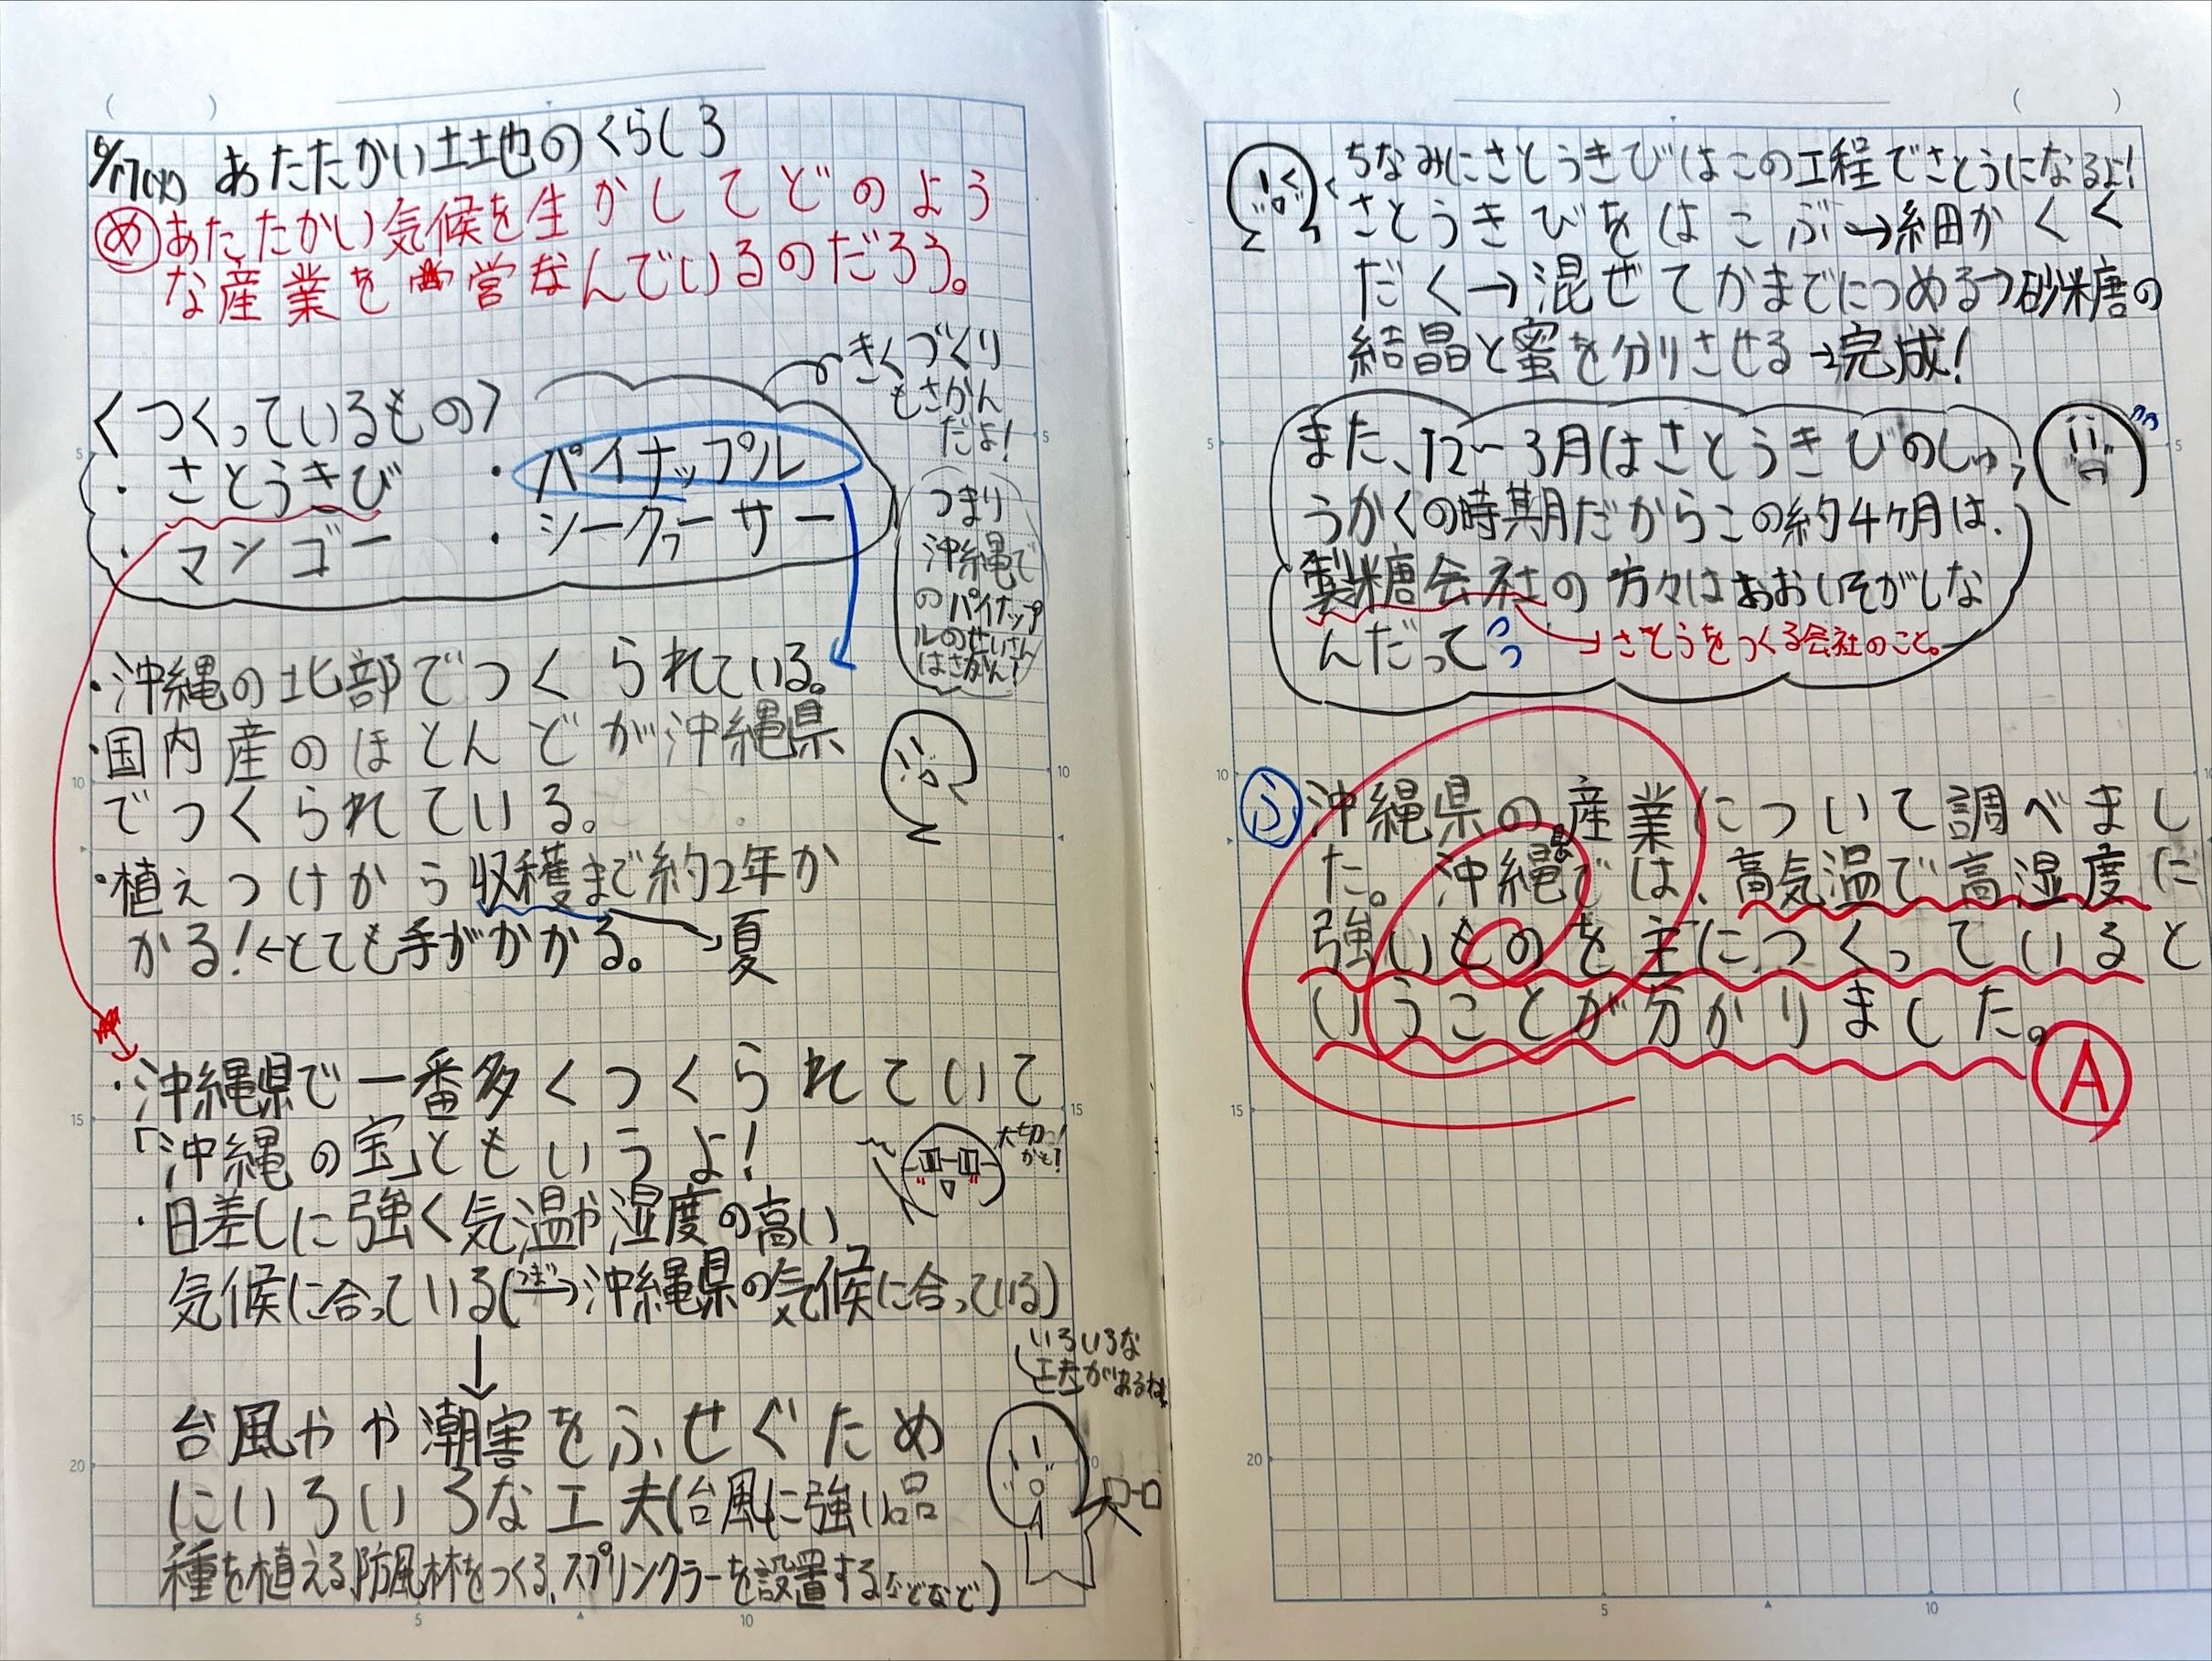 6/17(火) あたたかい土地のくらし3
め あたたかい気候を生かしてどのよう
な産業を営なんでいるのだろう。
<つくっているもの>
・さとうきび
・マンゴー
・パイナップル
・シークヮーサー
きくづくり
もさかん
だよ!
つまり
沖縄で
のパイナップ
ルのせいさん
はさかん!
・沖縄の北部でつくられている。
・国内産のほとんどが沖縄県
でつくられている。
・植えつけから収穫まで約2年か
かる!←とても手がかかる。
→夏
・沖縄県で一番多くつくられていて
「沖縄の宝」ともいうよ!
大切
かも!
・日差しに強く気温や湿度の高い
気候に合っている(つまり→沖縄県の気候に合っている)
↓
いろいろな
工夫があるね
台風やや潮害をふせぐため
にいろいろな工夫(台風に強い品
種を植える、防風林をつくる、スプリンクラーを設置するなどなど)
ちなみにさとうきびはこの工程でさとうになるよ!
さとうきびをはこぶ→細かくく
だく→混ぜてかまでにつめる→砂糖の
結晶と蜜を分りさせる→完成!
また、12〜3月はさとうきびのしゅ
うかくの時期だからこの約4ケ月は、
製糖会社の方々はおおいそがしな
んだって
→さとうをつくる会社のこと。
ふ 沖縄県の産業について調べまし
た。沖縄県では、高気温で高湿度に
強いものを主につくっていると
いうことが分かりました。
A